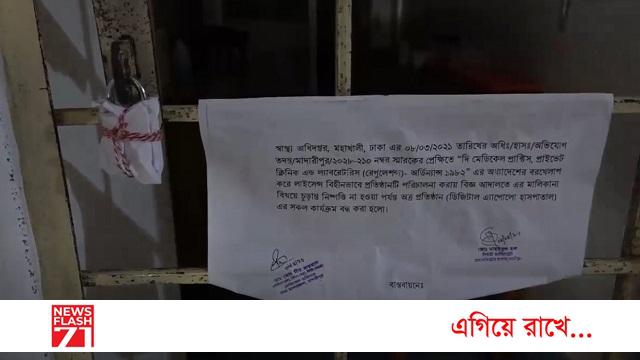 স্বাস্থ্য অধিদপ্তর, মহাখালী, ঢাকা এর ০৮/০৩/২০২১ তারিখের অধিঃ/হাসঃ/অভিযোগ
তদন্ত/মাদারীপুর/২০২৮-২১০ নম্বর স্মারকের প্রেক্ষিতে "দি মেডিকেল প্রাক্টিস, প্রাইভেট
ক্লিনিক এন্ড ল্যাবরেটরিস (রেগুলেশন্স)- অর্ডিন্যান্স ১৯৮২" এর অধ্যাদেশের বরখেলাপ
করে লাইসেন্স বিহীনভাবে প্রতিষ্ঠানটি পরিচালনা করায় বিজ্ঞ আদালতে এর মালিকানা
বিষয়ে চূড়ান্ত নিষ্পত্তি না হওয়া পর্যন্ত অত্র প্রতিষ্ঠান (ডিজিটাল এ্যাপোলো হাসপাতাল)
এর সকল কার্যক্রম বন্ধ করা হলো।
বাস্তবায়নেঃ
NEWS
FLASH
71
এগিয়ে রাখে...